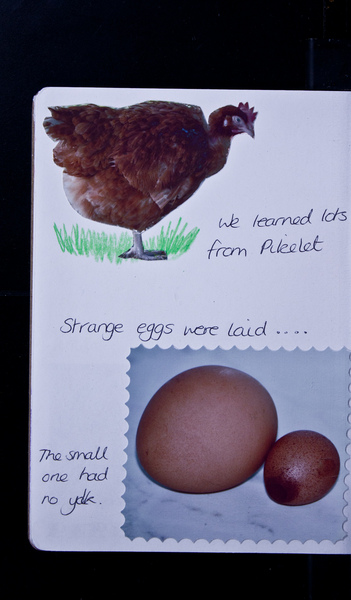 We learned lots
from Pikelet
Strange eggs were laid ....
The small
one had
no yolk.